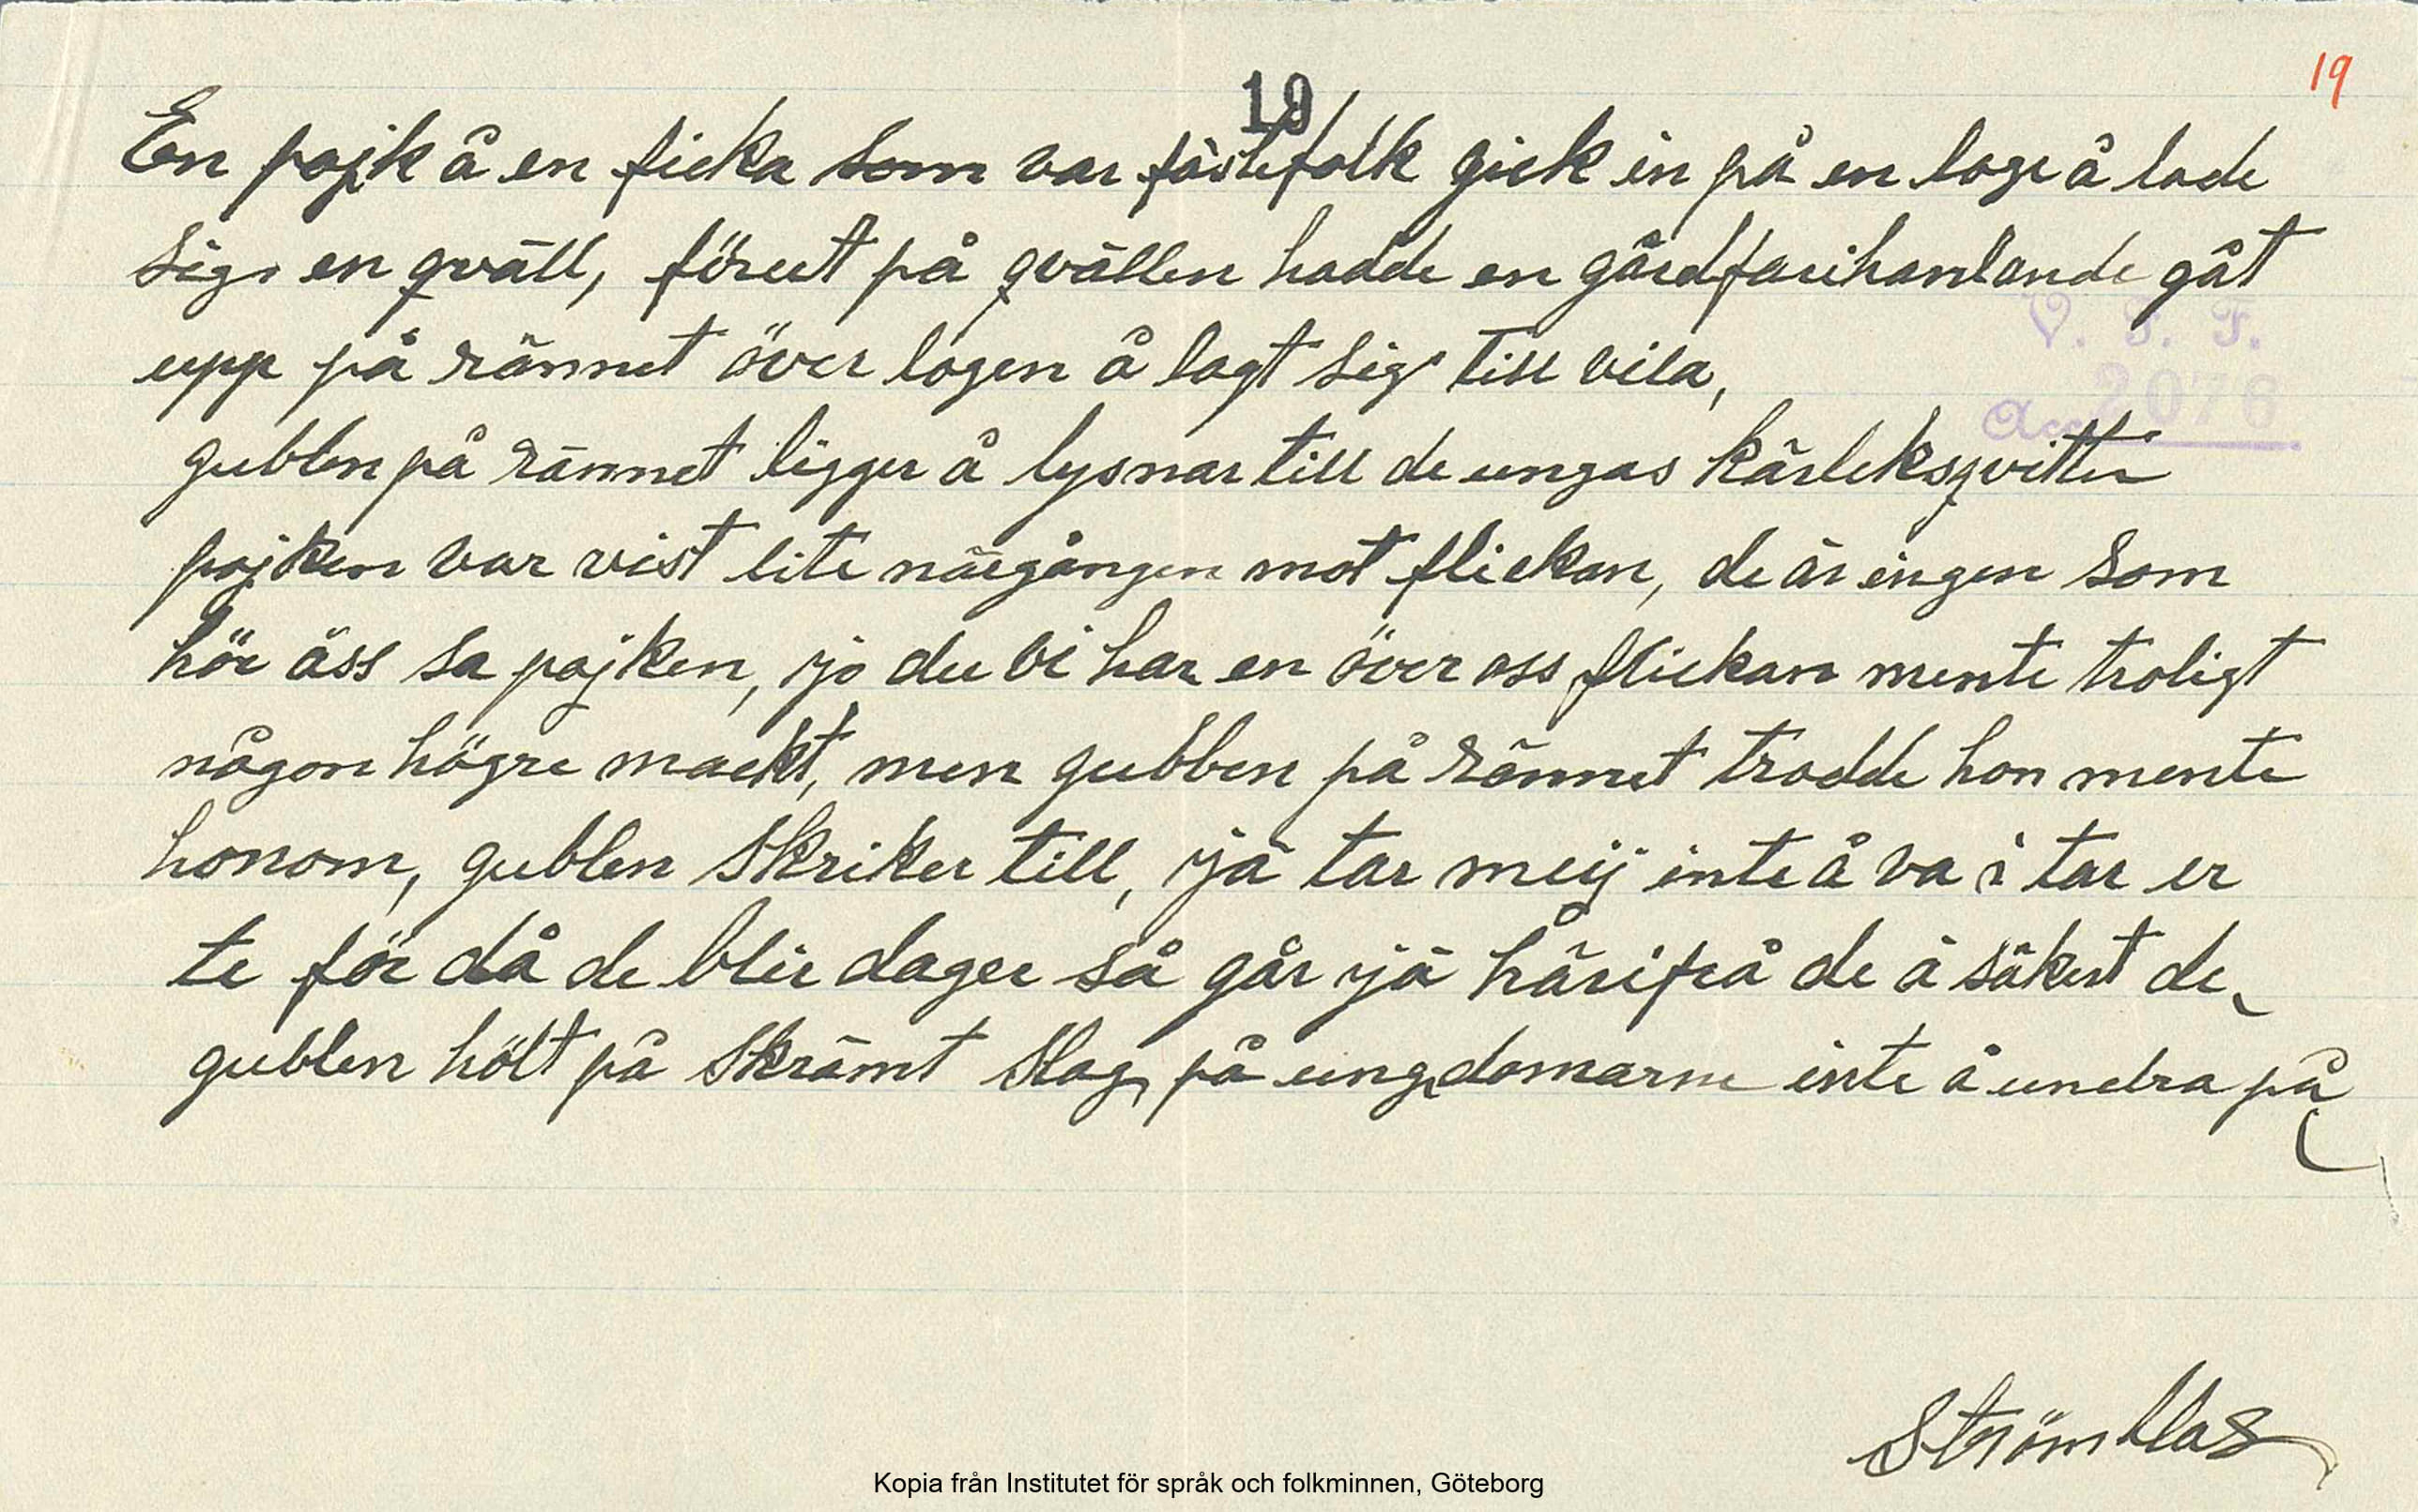 19
19
En pojk å en ficka som var fästefolk gick in på en loge å lade
sig en qväll, förut på qvällen hadde en gårdfarihanlande gåt
V. F. F.
upp på rännet över logen å lagt sig till vila,
Acc. 2076
gubben på rännet ligger å lysnar till de ungas kärleksqvitter
pojken var vist lite närgången mot flickan, de är ingen som
hör åss sa pojken, jo du vi har en över oss flickan mente troligt
någon högre mackt, men gubben på rännet trodde hon mente
honom, gubben skriker till, ja tar meij inte å va i tar er
te för då de blir dager så går ja härifrå de ä säkert de
gubben hölt på skrämt slag på ungdomarne inte å undra på
Strömblas
Kopia från Institutet för språk och folkminnen, Göteborg